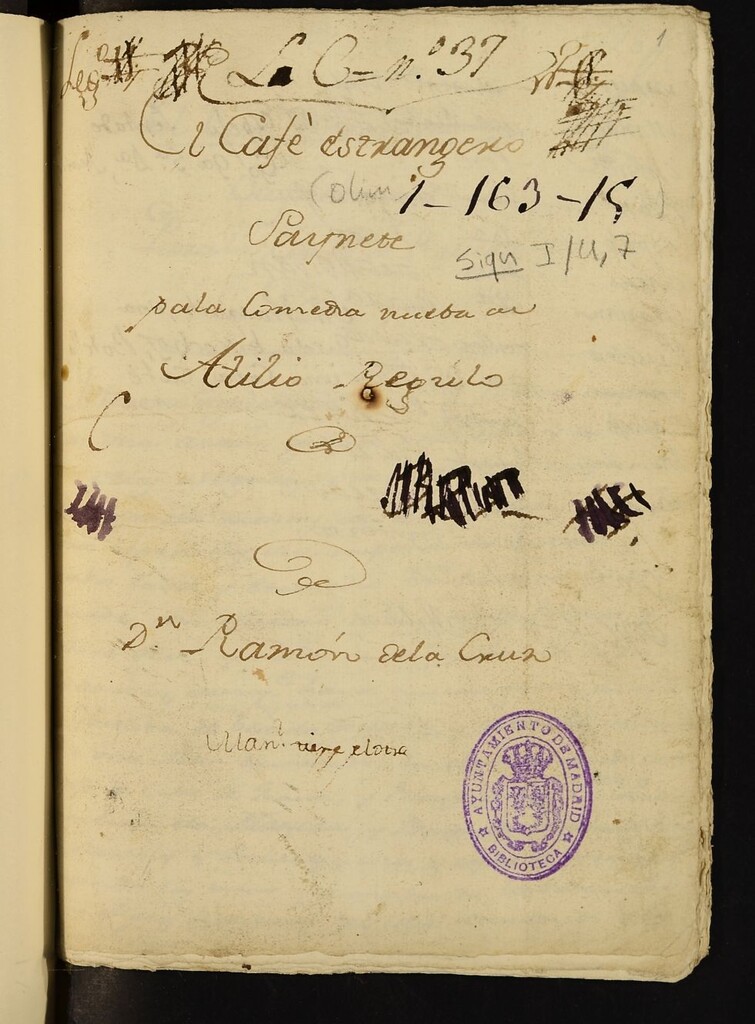 1
Leg.º
L. C = n.º 37
El Cafè estrangero
(olim 1-163-15)
Saynete
Sign I/4,7
pala Comedia nueba de
Atilio Regulo
de
D.n Ramón dela Cruz
Man.l tiene el otra
AYUNTAMIENTO DE MADRID
BIBLIOTECA